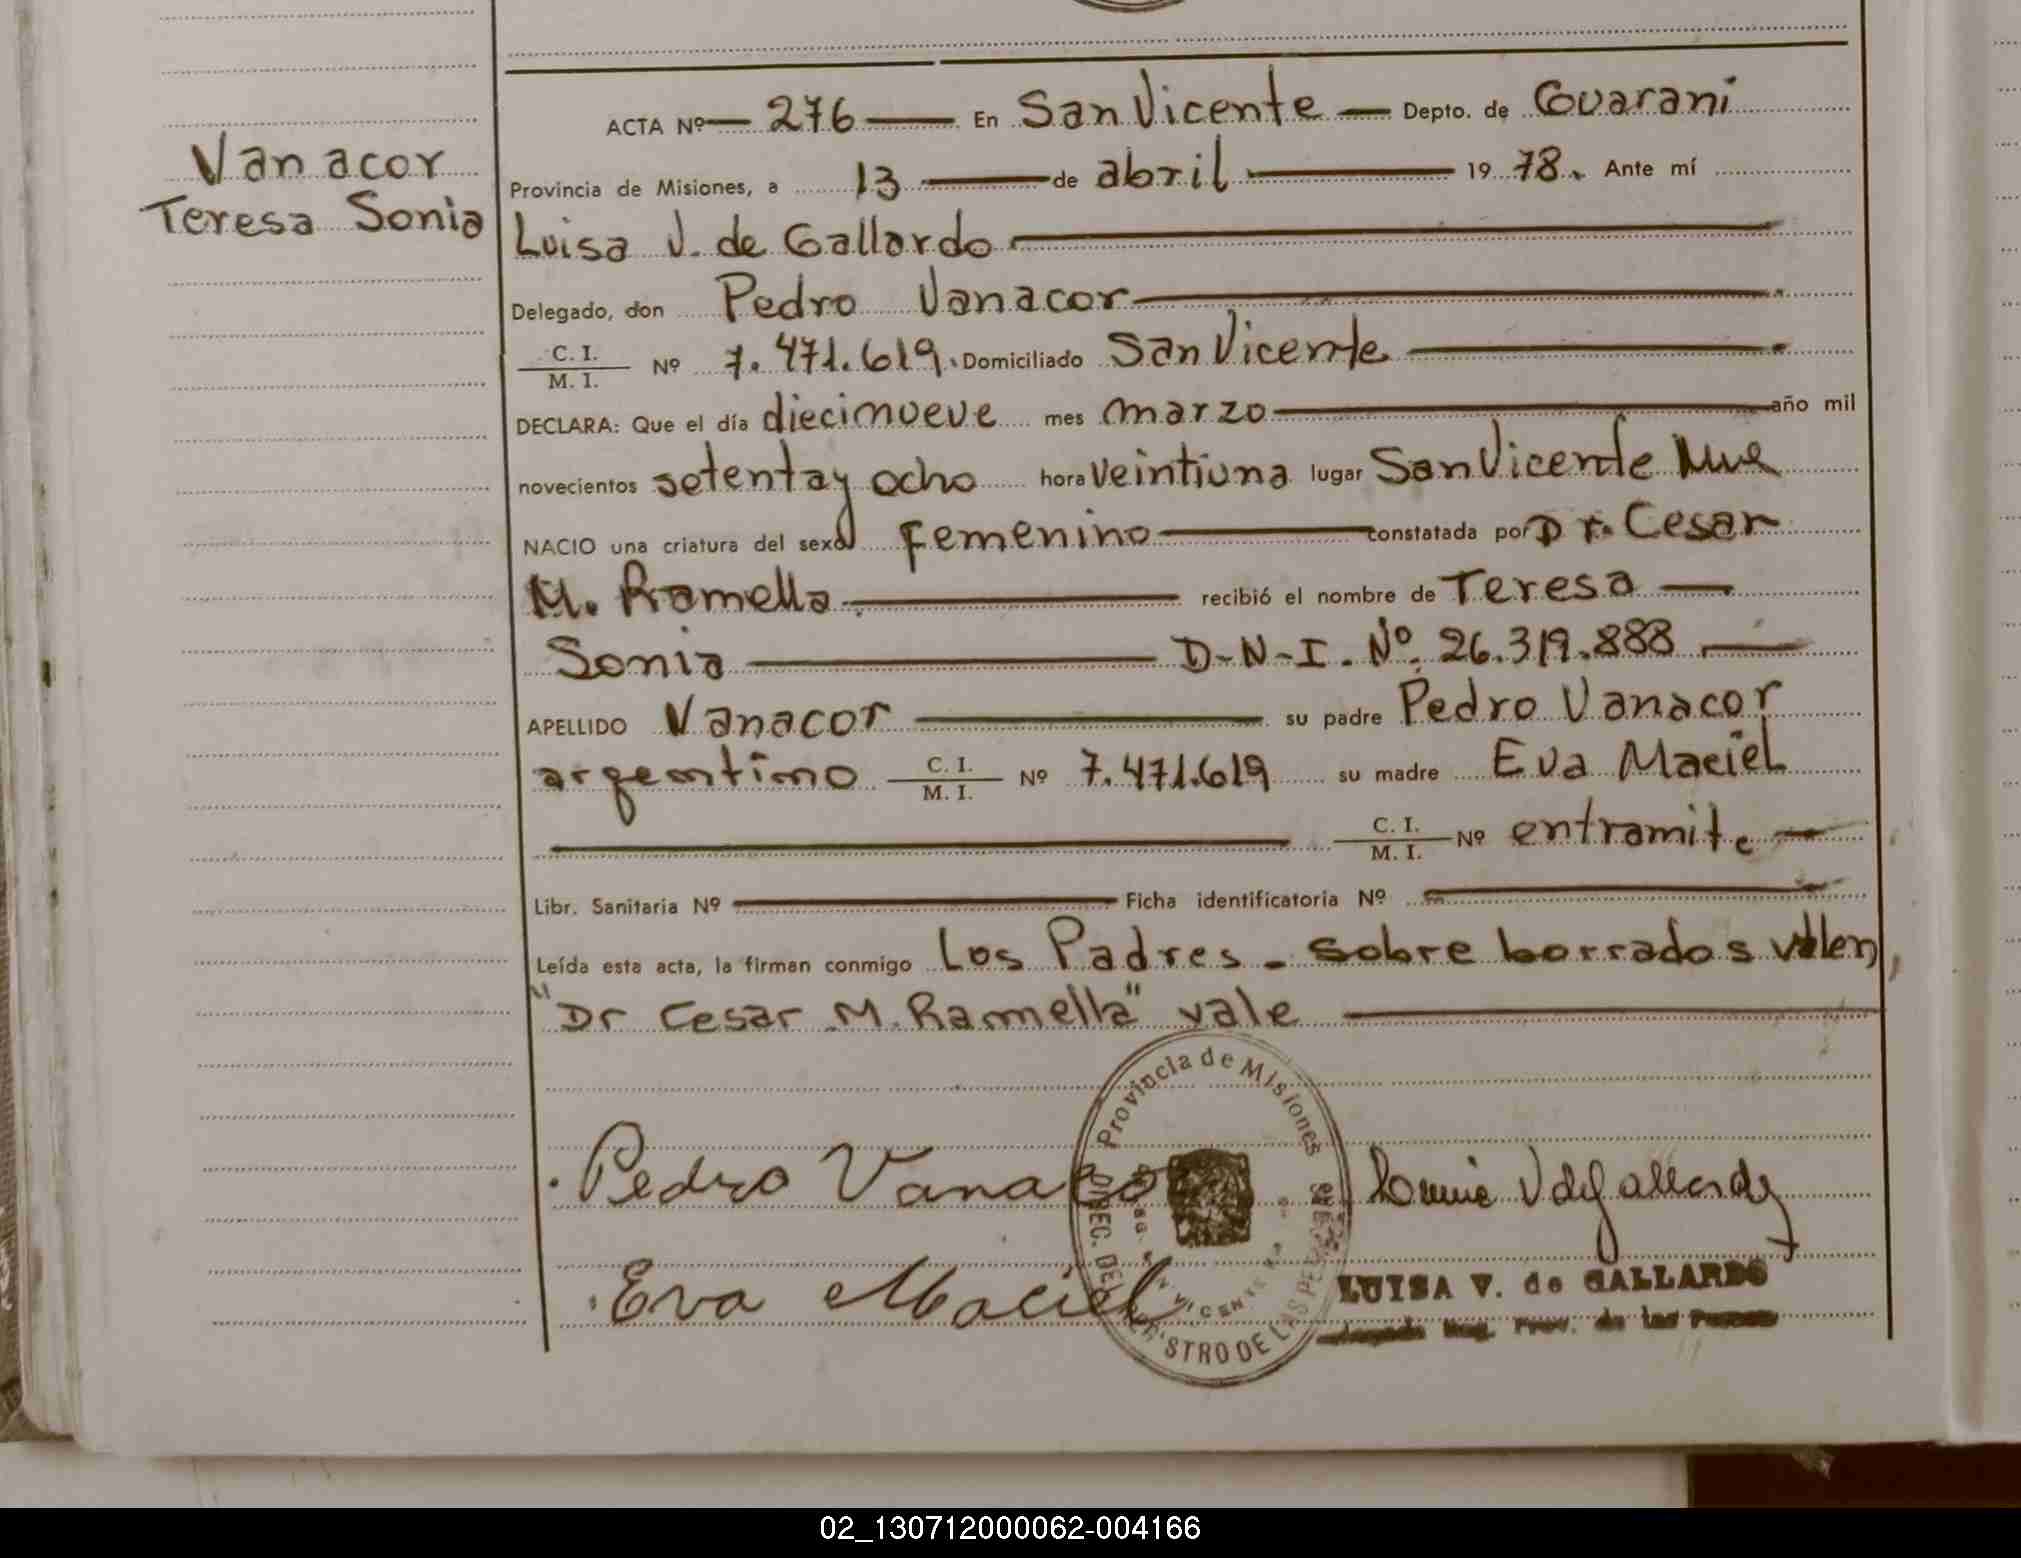 Vanacor
Teresa Sonia
ACTA Nº 276 En San Vicente Depto. de Guarani
Provincia de Misiones, a 13 de abril 1978. Ante mí
Luisa V. de Gallardo
Delegado, don Pedro Vanacor
C. I.
M. I.
Nº 7.471.619. Domiciliado San Vicente
DECLARA: Que el día diecinueve mes marzo año mil
novecientos setenta y ocho hora veintiuna lugar San Vicente Mnes
NACIO una criatura del sexo Femenino constatada por Dr. Cesar
M. Ramella recibió el nombre de Teresa
Sonia D-N-I. Nº. 26.319.888
APELLIDO Vanacor su padre Pedro Vanacor
argentino C. I. / M. I. Nº 7.471.619 su madre Eva Maciel
C. I. / M. I. Nº entramite
Libr. Sanitaria Nº Ficha identificatoria Nº
Leída esta acta, la firman conmigo Los Padres - sobre borrados valen,
"Dr Cesar M. Ramella" vale
Provincia de Misiones
DIREC. DEL REGISTRO DE LAS PERSONAS
Pedro Vanacor
Eva Maciel
LUISA V. de GALLARDO
Reg. Prov. de las
02_130712000062-004166